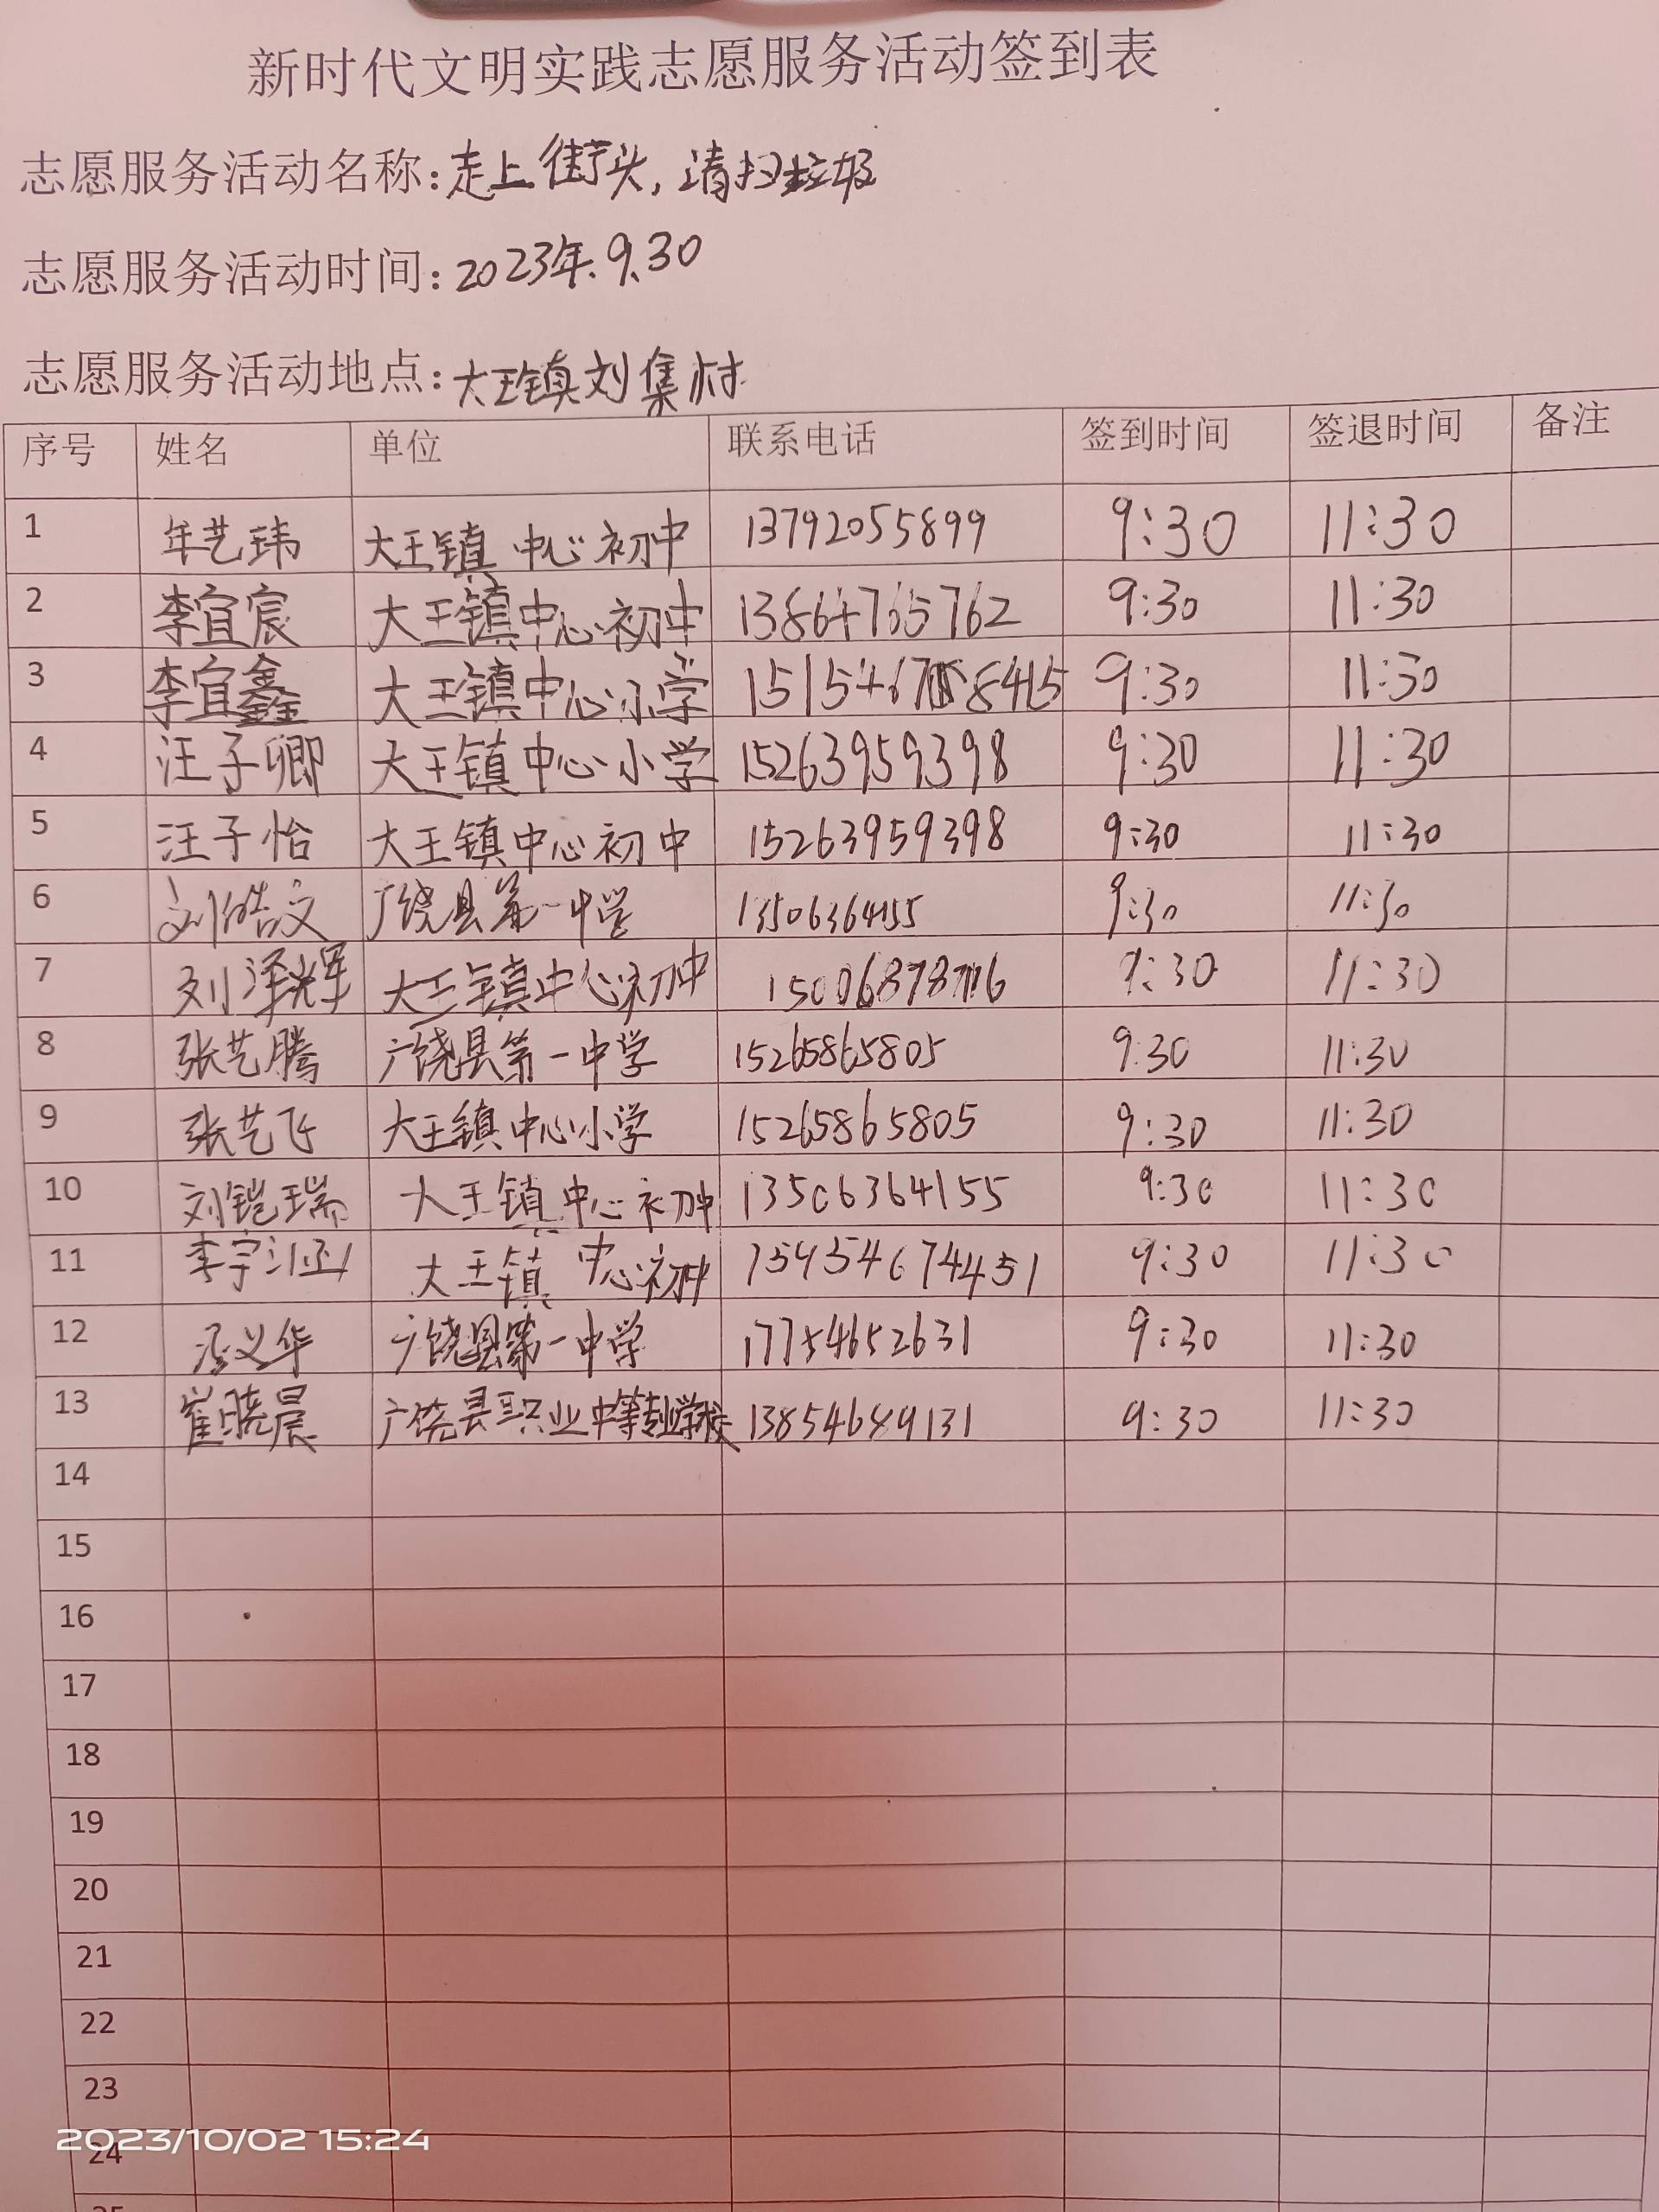 新时代文明实践志愿服务活动签到表
志愿服务活动名称:走上街头,清扫垃圾
志愿服务活动时间:2023年.9.30
志愿服务活动地点:大王镇刘集村
序号 姓名 单位 联系电话 签到时间 签退时间 备注
1 年艺玮 大王镇中心初中 13792055899 9:30 11:30
2 李宜宸 大王镇中心初中 13864765762 9:30 11:30
3 李宜鑫 大王镇中心小学 9:30 11:30
4 汪子卿 大王镇中心小学 15263959398 9:30 11:30
5 汪子怡 大王镇中心初中 15263959398 9:30 11:30
6 刘皓文 广饶县第一中学 13506364155 9:30 11:30
7 刘泽辉 大王镇中心初中 9:30 11:30
8 张艺腾 广饶县第一中学 15265865805 9:30 11:30
9 张艺飞 大王镇中心小学 15265865805 9:30 11:30
10 刘铠瑞 大王镇中心初中 13506364155 9:30 11:30
11 李宇涵 大王镇中心初中 9:30 11:30
12 义华 广饶县第一中学 17754652631 9:30 11:30
13 崔晓晨 广饶县职业中等专业学校 13854689131 9:30 11:30
14
15
16
17
18
19
20
21
22
23
2023/10/02 15:24
24
25